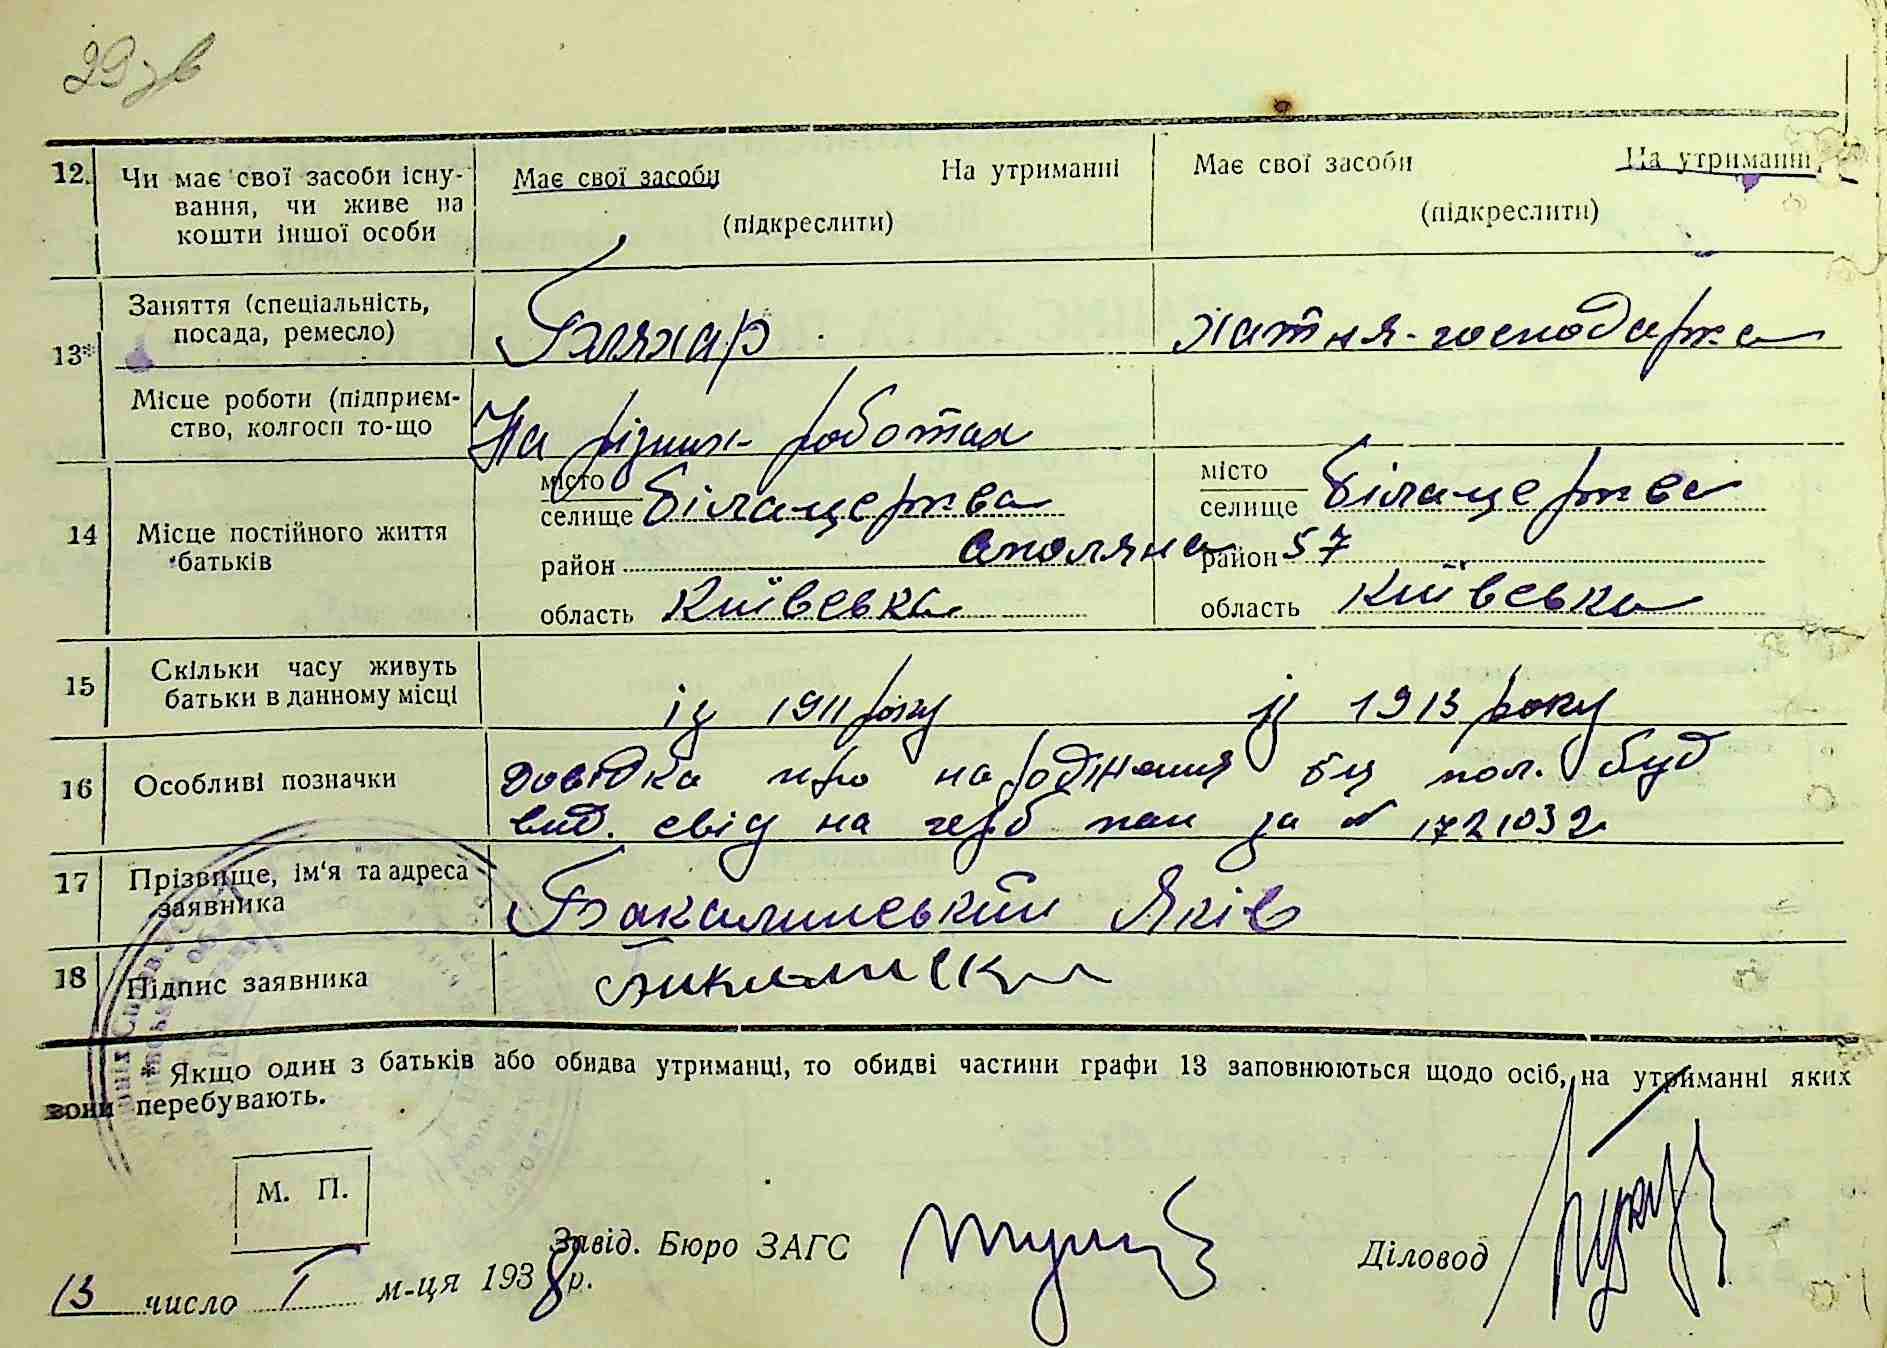 29 зв
12. Чи має свої засоби існу- Має свої засоби На утриманні Має свої засоби На утриманні
вання, чи живе на (підкреслити) (підкреслити)
кошти іншої особи
13* Заняття (спеціальність, Бляхар хатня-господарка
посада, ремесло)
Місце роботи (підприєм- На різних роботах
ство, колгосп то-що
14 Місце постійного життя місто селище Білацерква місто селище Білацерква
батьків район район 57
область Київська область Київська
15 Скільки часу живуть із 1911 року із 1913 року
батьки в данному місці
16 Особливі позначки Довідка про народження від пол. буд
вид. свід на герб пап за № 1721032
17 Прізвище, ім'я та адреса Бакалинський Яків
заявника
18 Підпис заявника
* Якщо один з батьків або обидва утриманці, то обидві частини графи 13 заповнюються щодо осіб, на утриманні яких
вони перебувають.
М. П.
Завід. Бюро ЗАГС Діловод
13 число I м-ця 1938 р.